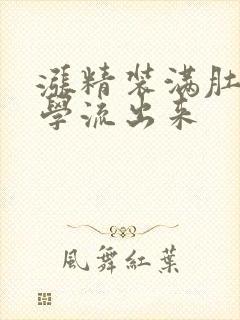 漲精装满肚
學流出来
風舞紅葉